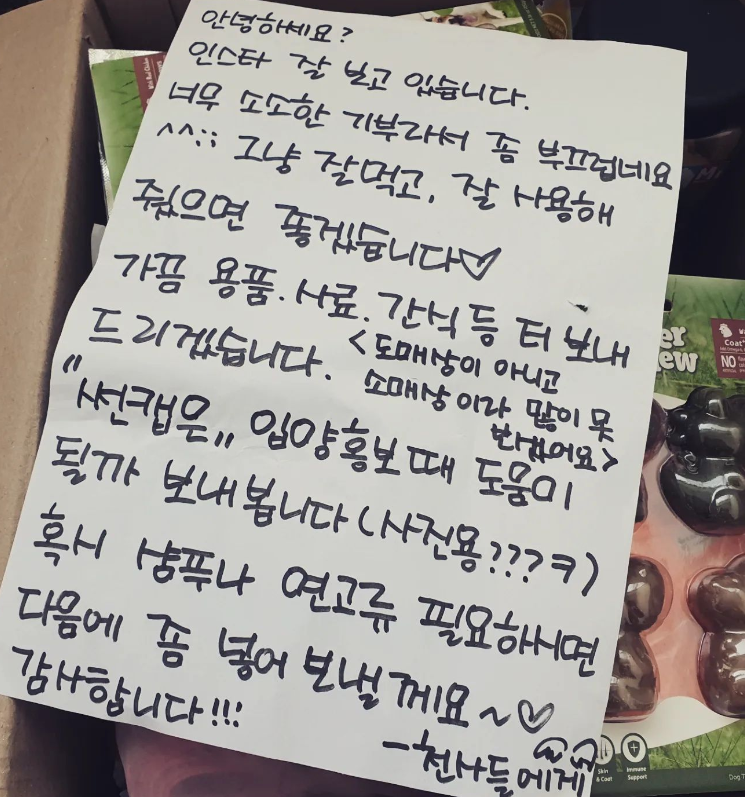 안녕하세요?
인스타 잘 보고 있습니다.
너무 소소한 기부라서 좀 부끄럽네요
^^;; 그냥 잘먹고, 잘 사용해
줬으면 좋겠습니다♡
가끔 용품. 사료. 간식 등 터 보내
드리겠습니다. <도매상이 아니고
소매상이라 많이 못
"썬캡은" 입양홍보때 도움이
될까 보내봅니다 (사진용???ㅋ)
혹시 샴푸나 연고류 필요하시면
다음에 좀 넣어 보낼께요~♡
감사합니다!!!
-천사들에게
Coat
NO
Skin
& Coat
Immune
Support